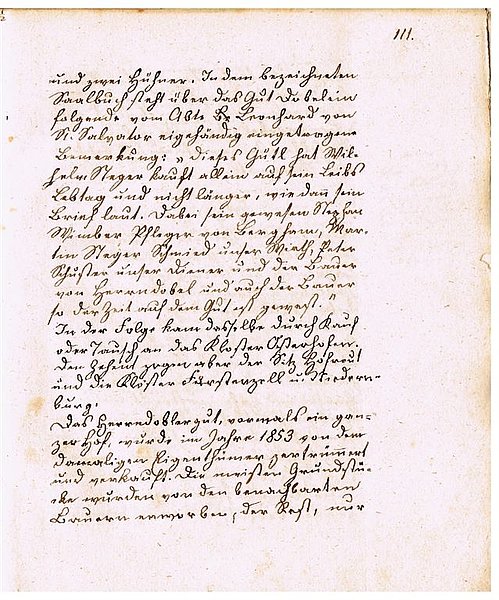 111.
und zwei Hühner. In dem bezeichneten
Saalbuch steht über das Gut Dobelein
folgende vom Abte Leonhard von
St. Salvator eigehändig eingetragene
Bemerkung: „dieses Gütl hat Wil-
helm Steger kauft allein auf sein Leibs
Lebtag und nicht länger, wie dan sein
Brief laut. Dabei sein gewesen Stephan
Wimber Pfleger von Berghem, Mar-
tin Steger Schmied unser Wirth, Peter
Schuster unser Diener und der Bauer
von Herrndobel und auch der Bauer
so der Zeit auf dem Gut ist gewest."
In der Folge kam dasselbe durch Kauf
oder Tausch an das Kloster Osterhofen.
Den Zehent zogen aber der Sitz
und die Klöster Fürstenzell u. Niedern-
burg.
Das Herrndoblergut, vormals ein gan-
zer Hof, wurde im Jahre 1853 von dem
damaligen Eigenthümer zertrümmert
und verkauft. Die meisten Grundstü-
cke wurden von den benachbarten
Bauern erworben, der Rest, nur